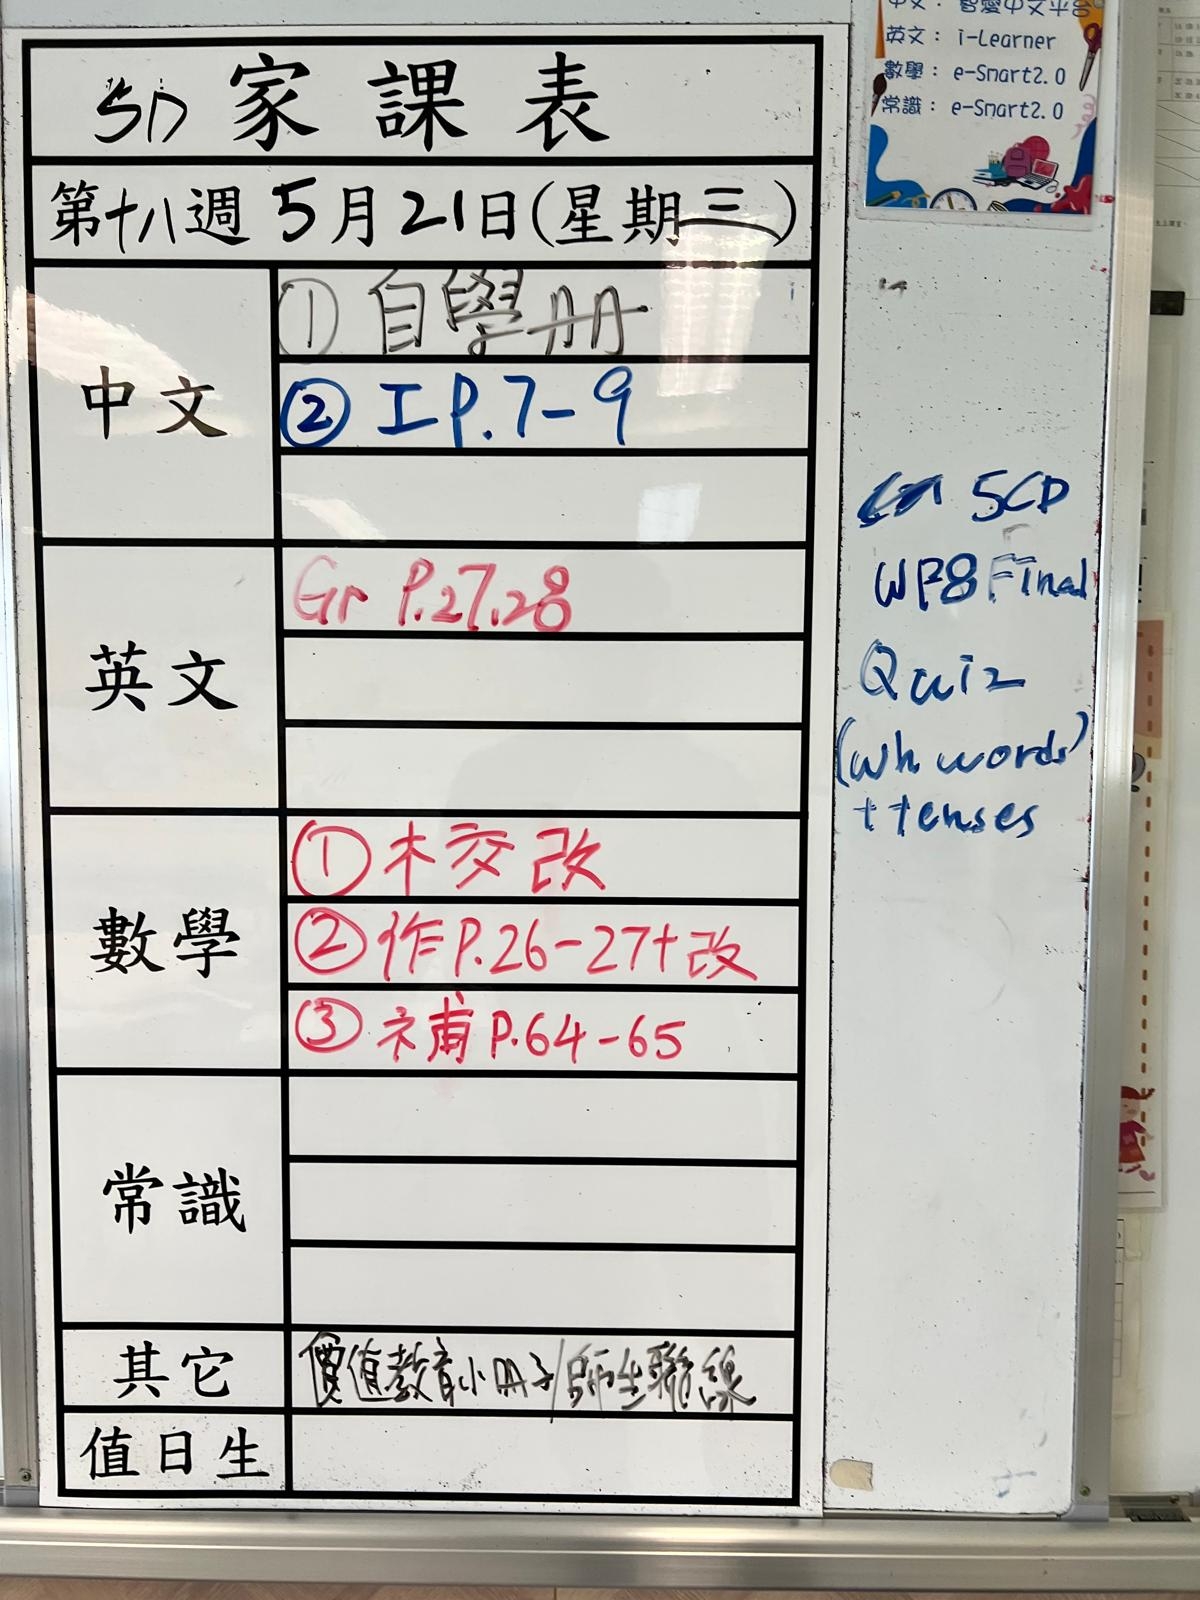 5D 家課表
第十八週 5月21日(星期三)
中文
① 自學冊
② 工 P.7-9
英文
Gr P.27.28
數學
① 木交改
② 作P.26-27+改
③ 補 P.64-65
常識
其它
價值教育小冊子/師生聯線
值日生
中文: 智愛中文平台
英文: i-Learner
數學: e-Smart2.0
常識: e-Smart2.0
5CD
WP8 Final
Quiz
(wh words)
+ tenses